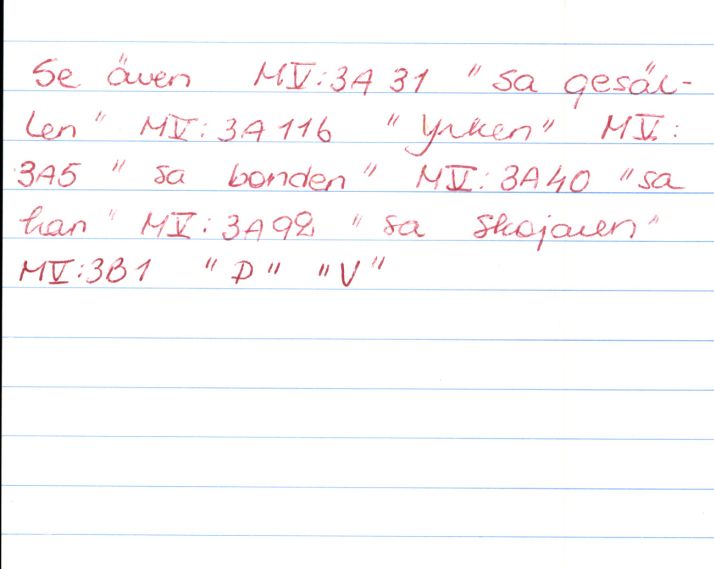 Se även MV:3A 31 "sa gesäl-
len" MV:3A 116 "Yrken" MV:
3A5 "sa bonden" MV:3A40 "sa
han" MV:3A92 "sa skojaren"
MV:3B1 "D" "V"